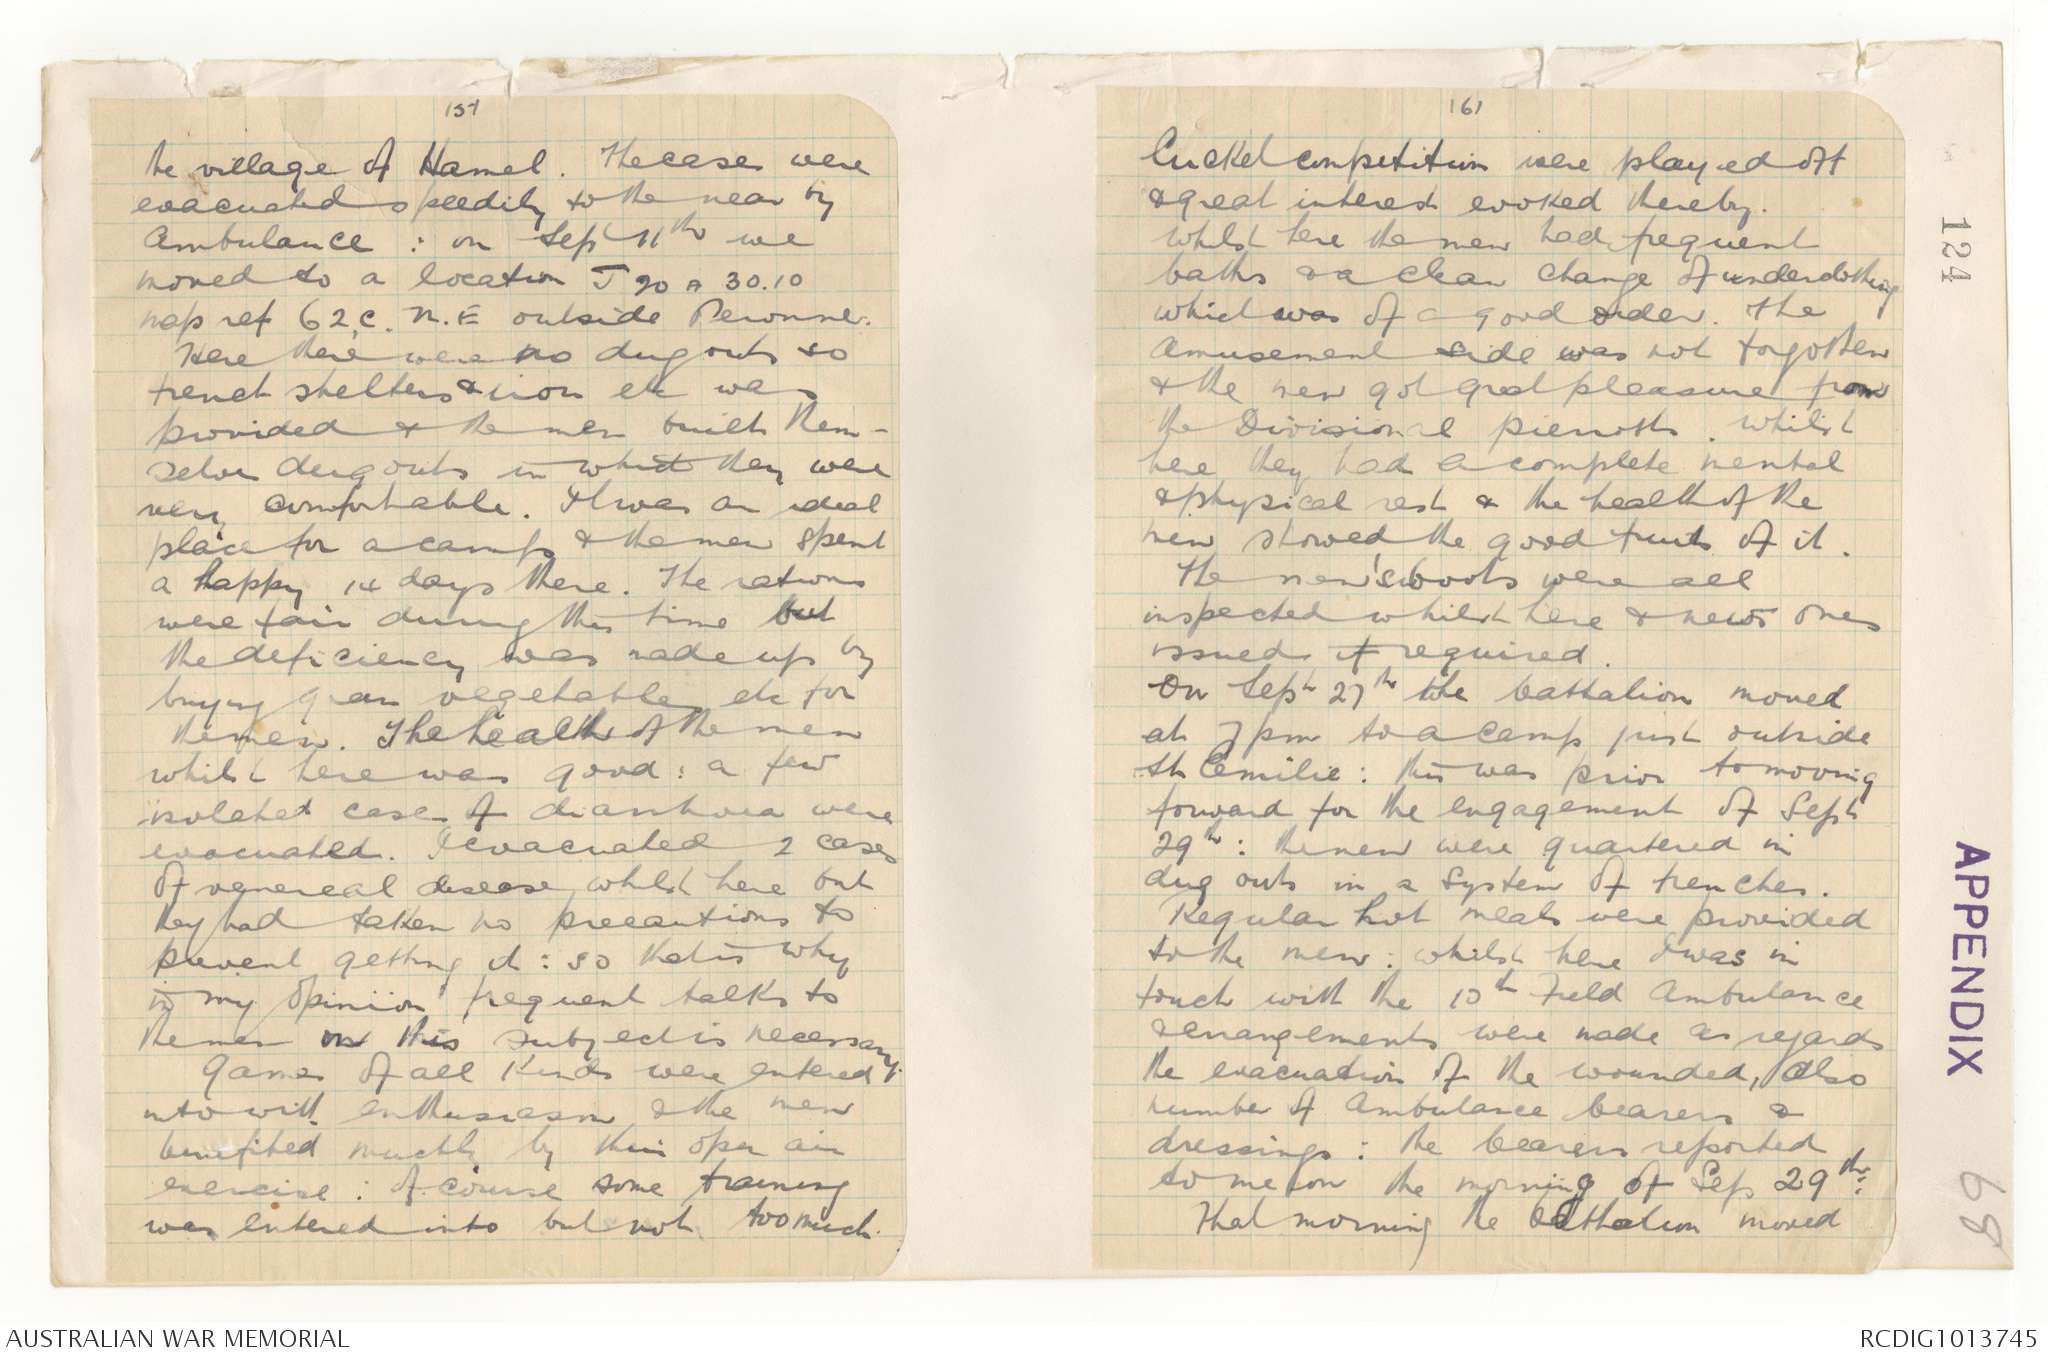 151
the village of Hamel. The cases were
evacuated speedily to the near by
Ambulance : on Sept 11th we
moved to a location J 20 A 30.10
map ref 62c. N.E outside Peronne.
Here there were no dugouts so
trench shelters & iron etc was
provided & the men built them-
selves dugouts in which they were
very comfortable. It was an ideal
place for a camp & the men spent
a happy 14 days there. The rations
were fair during this time but
the deficiency was made up by
buying green vegetables etc for
the men. The health of the men
whilst here was good : a few
isolated cases of diarrhoea were
evacuated. I evacuated 2 cases
of venereal disease whilst here but
they had taken no precautions to
prevent getting it : so that is why
in my opinion frequent talks to
the men on this subject is necessary.
Games of all kinds were entered
into with enthusiasm & the men
benefited muchly by their open air
exercise : of course some training
was entered into but not too much.
161
Cricket competition were played off
& great interest evoked thereby.
Whilst here the men had frequent
baths & a clean change of underclothing
which was of a good order. The
amusement side was not forgotten
& the men got great pleasure from
the Divisional pierrots. Whilst
here they had a complete mental
& physical rest & the health of the
men showed the good fruits of it.
The men's boots were all
inspected whilst here & new ones
issued if required.
On Sept 27th the battalion moved
at 7 pm to a camp just outside
St Emilie : this was prior to moving
forward for the engagement of Sept
29th : the men were quartered in
dug outs in a system of trenches.
Regular hot meals were provided
to the men : whilst here I was in
touch with the 10th Field Ambulance
& arrangements were made as regards
the evacuation of the wounded, also
number of Ambulance bearers &
dressings : the bearers reported
to me on the morning of Sep 29th.
That morning the battalion moved
124
APPENDIX
68
AUSTRALIAN WAR MEMORIAL
RCDIG1013745